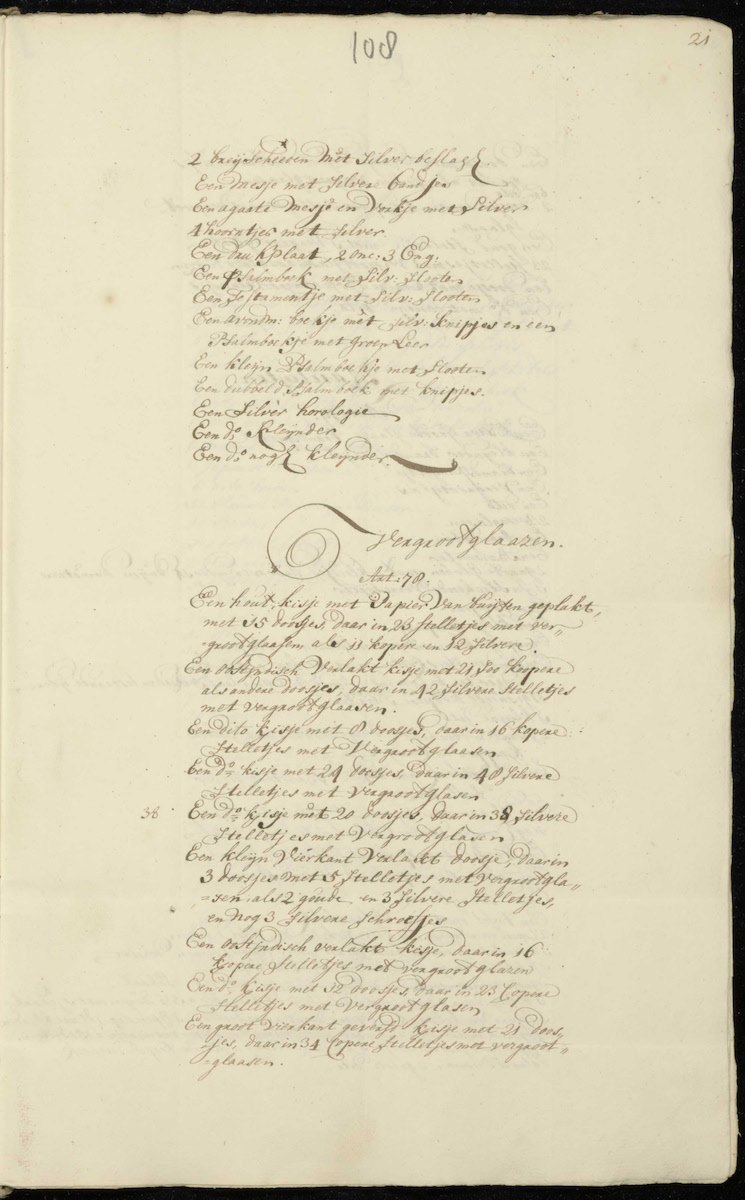 108
21
2 breijscheeden met Silver beslagh.
Een mesje met Silvere bandjes
Een agaate Mesje en Vorkje met Silver
4 hoorntjes met Silver
Een plaat, 2 onc: 3 Eng.
Een Psalmboek met Silv: Slooten
Een Testamentje met Silv: Slooten
Een avondm: boekje met silv: knipjes en een
Psalmboekje met groen Leer
Een kleijn Psalmboekje met slooten
Een dubbeld Psalmboek met knipjes.
Een Silver horologie
Een do. kleijnder
Een do. nogh kleijnder.
Vergrootglaazen.
Art: 78.
Een hout kisje met Papier van buijten geplakt,
met 15 doosjes, daar in 23 stelletjes met ver-
grootglaasen als 11 kopere en 12 silvere.
Een oostjndisch verlakt kisje met 21 soo koopere
als andere doosjes, daar in 42 Silvere Stelletjes
met vergrootglaasen.
Een dito kisje met 8 doosjes, daar in 16 kopere
Stelletjes met Vergrootglaasen
Een do. kisje met 24 doosjes, daar in 48 Silvere
Stelletjes met vergrootglasen
38 Een do. kisje met 20 doosjes, daar in 38 Silvere
Stelletjes met Vergrootglasen
Een kleijn Vierkant Verlakt doosje, daar in
3 doosjes met 5 stelletjes met vergrootgla„
„sen, als 2 goude en 3 Silvere Stelletjes,
en nog 3 silvere schroefjes
Een oostjndisch verlakt kisje, daar in 16
kopere Stelletjes met vergrootglazen
Een do. kisje met 12 doosjes, daar in 23 kopere
Stelletjes met Vergrootglasen
Een groot vierkant geverfd kisje met 21 doos„
„jes, daar in 34 Copere Stelletjes met vergroot„
„glaasen.